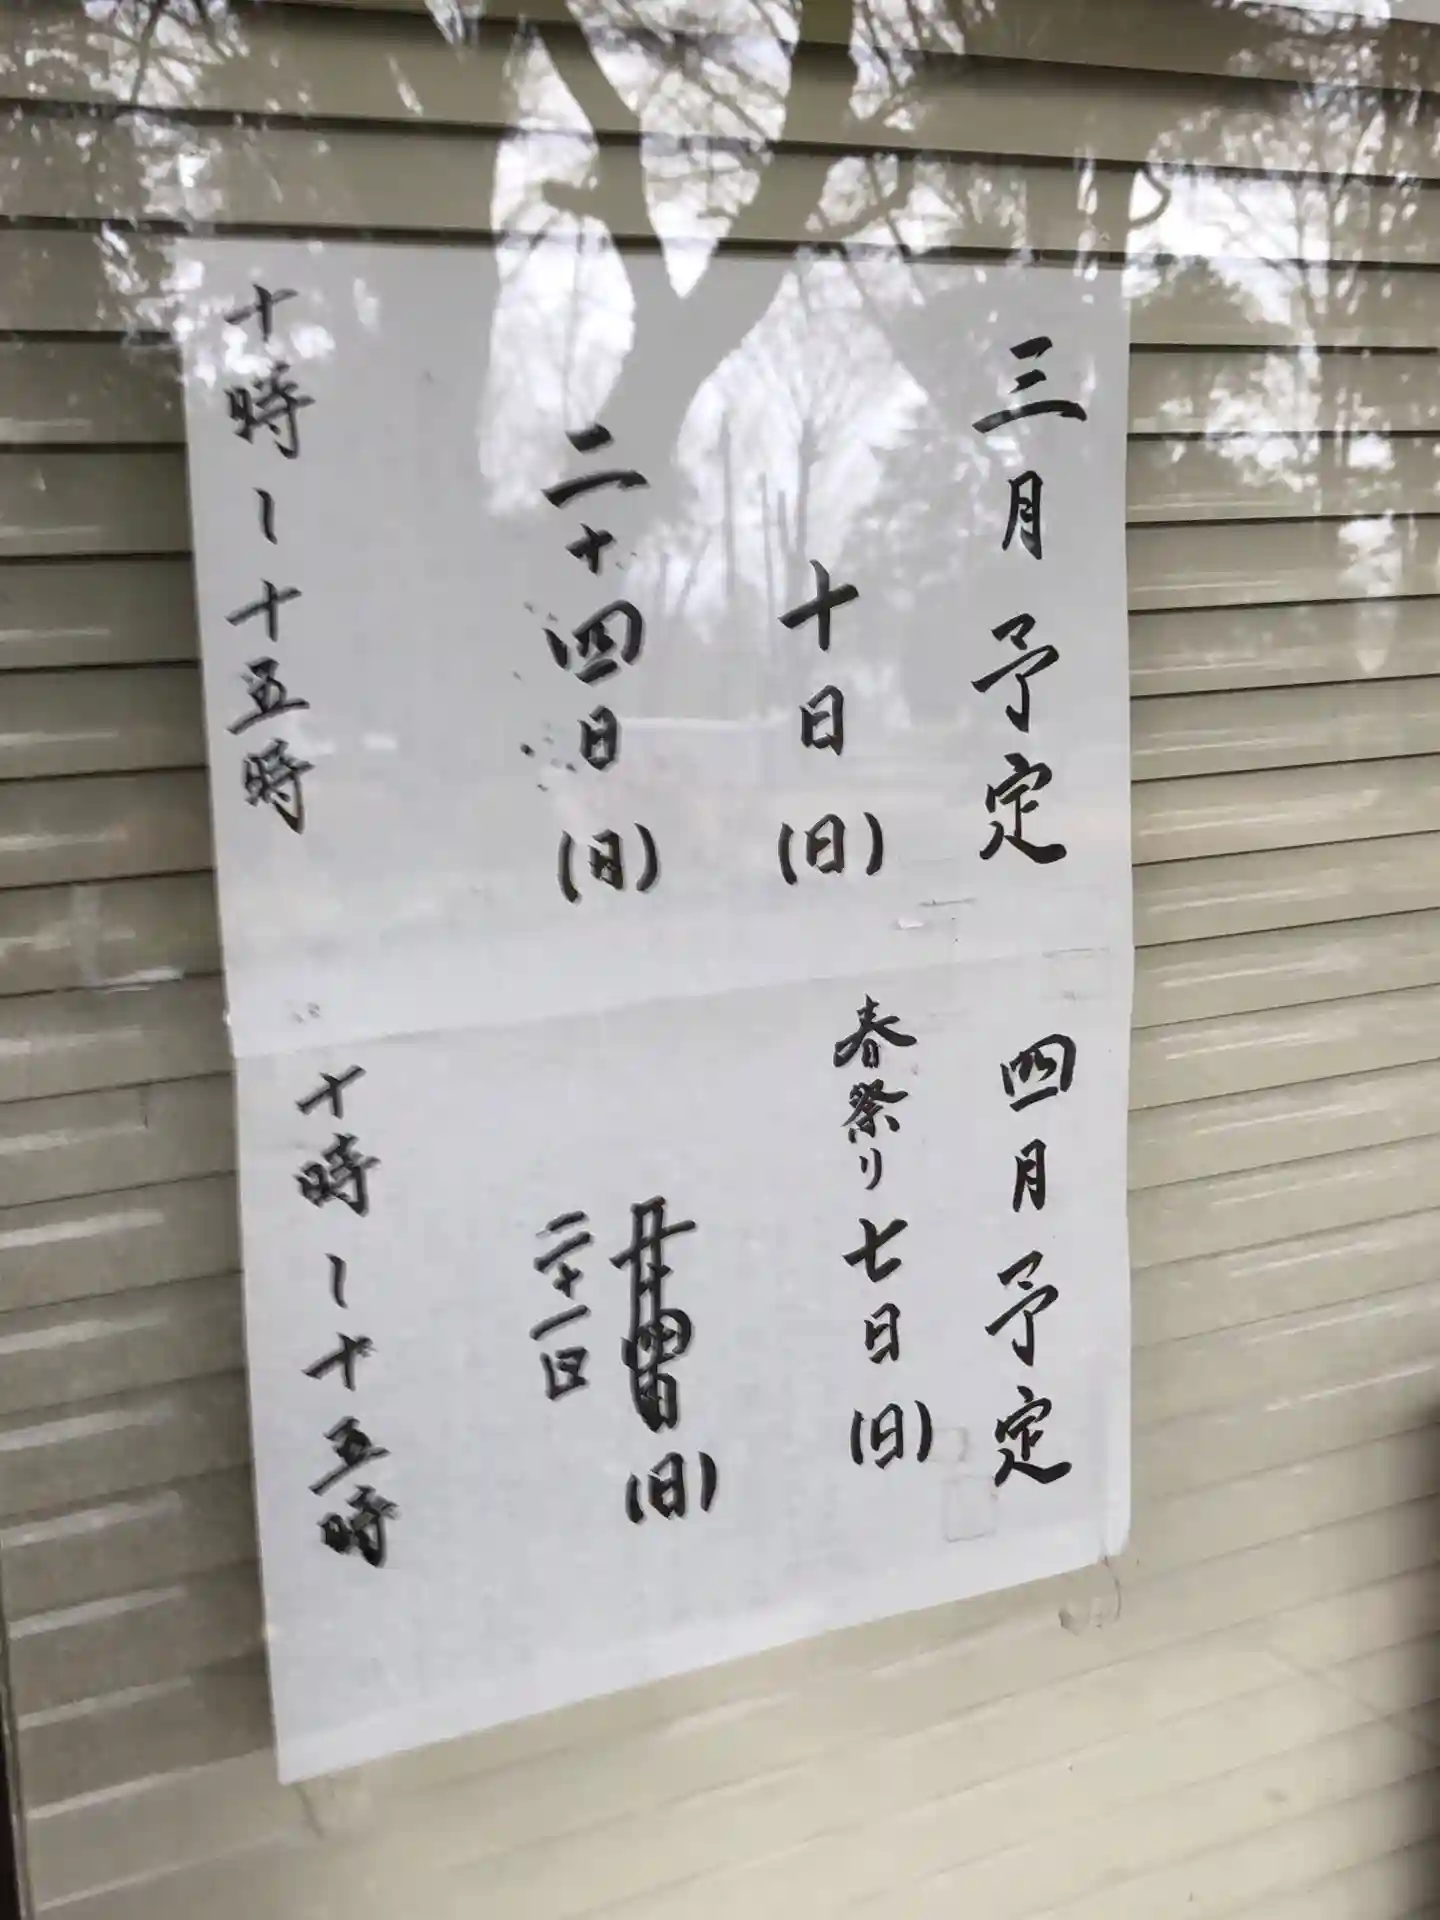 三月予定
十日(日)
二十四日(日)
十時ー十五時
四月予定
春祭り七日(日)
(日)
二十一日
十時ー十五時